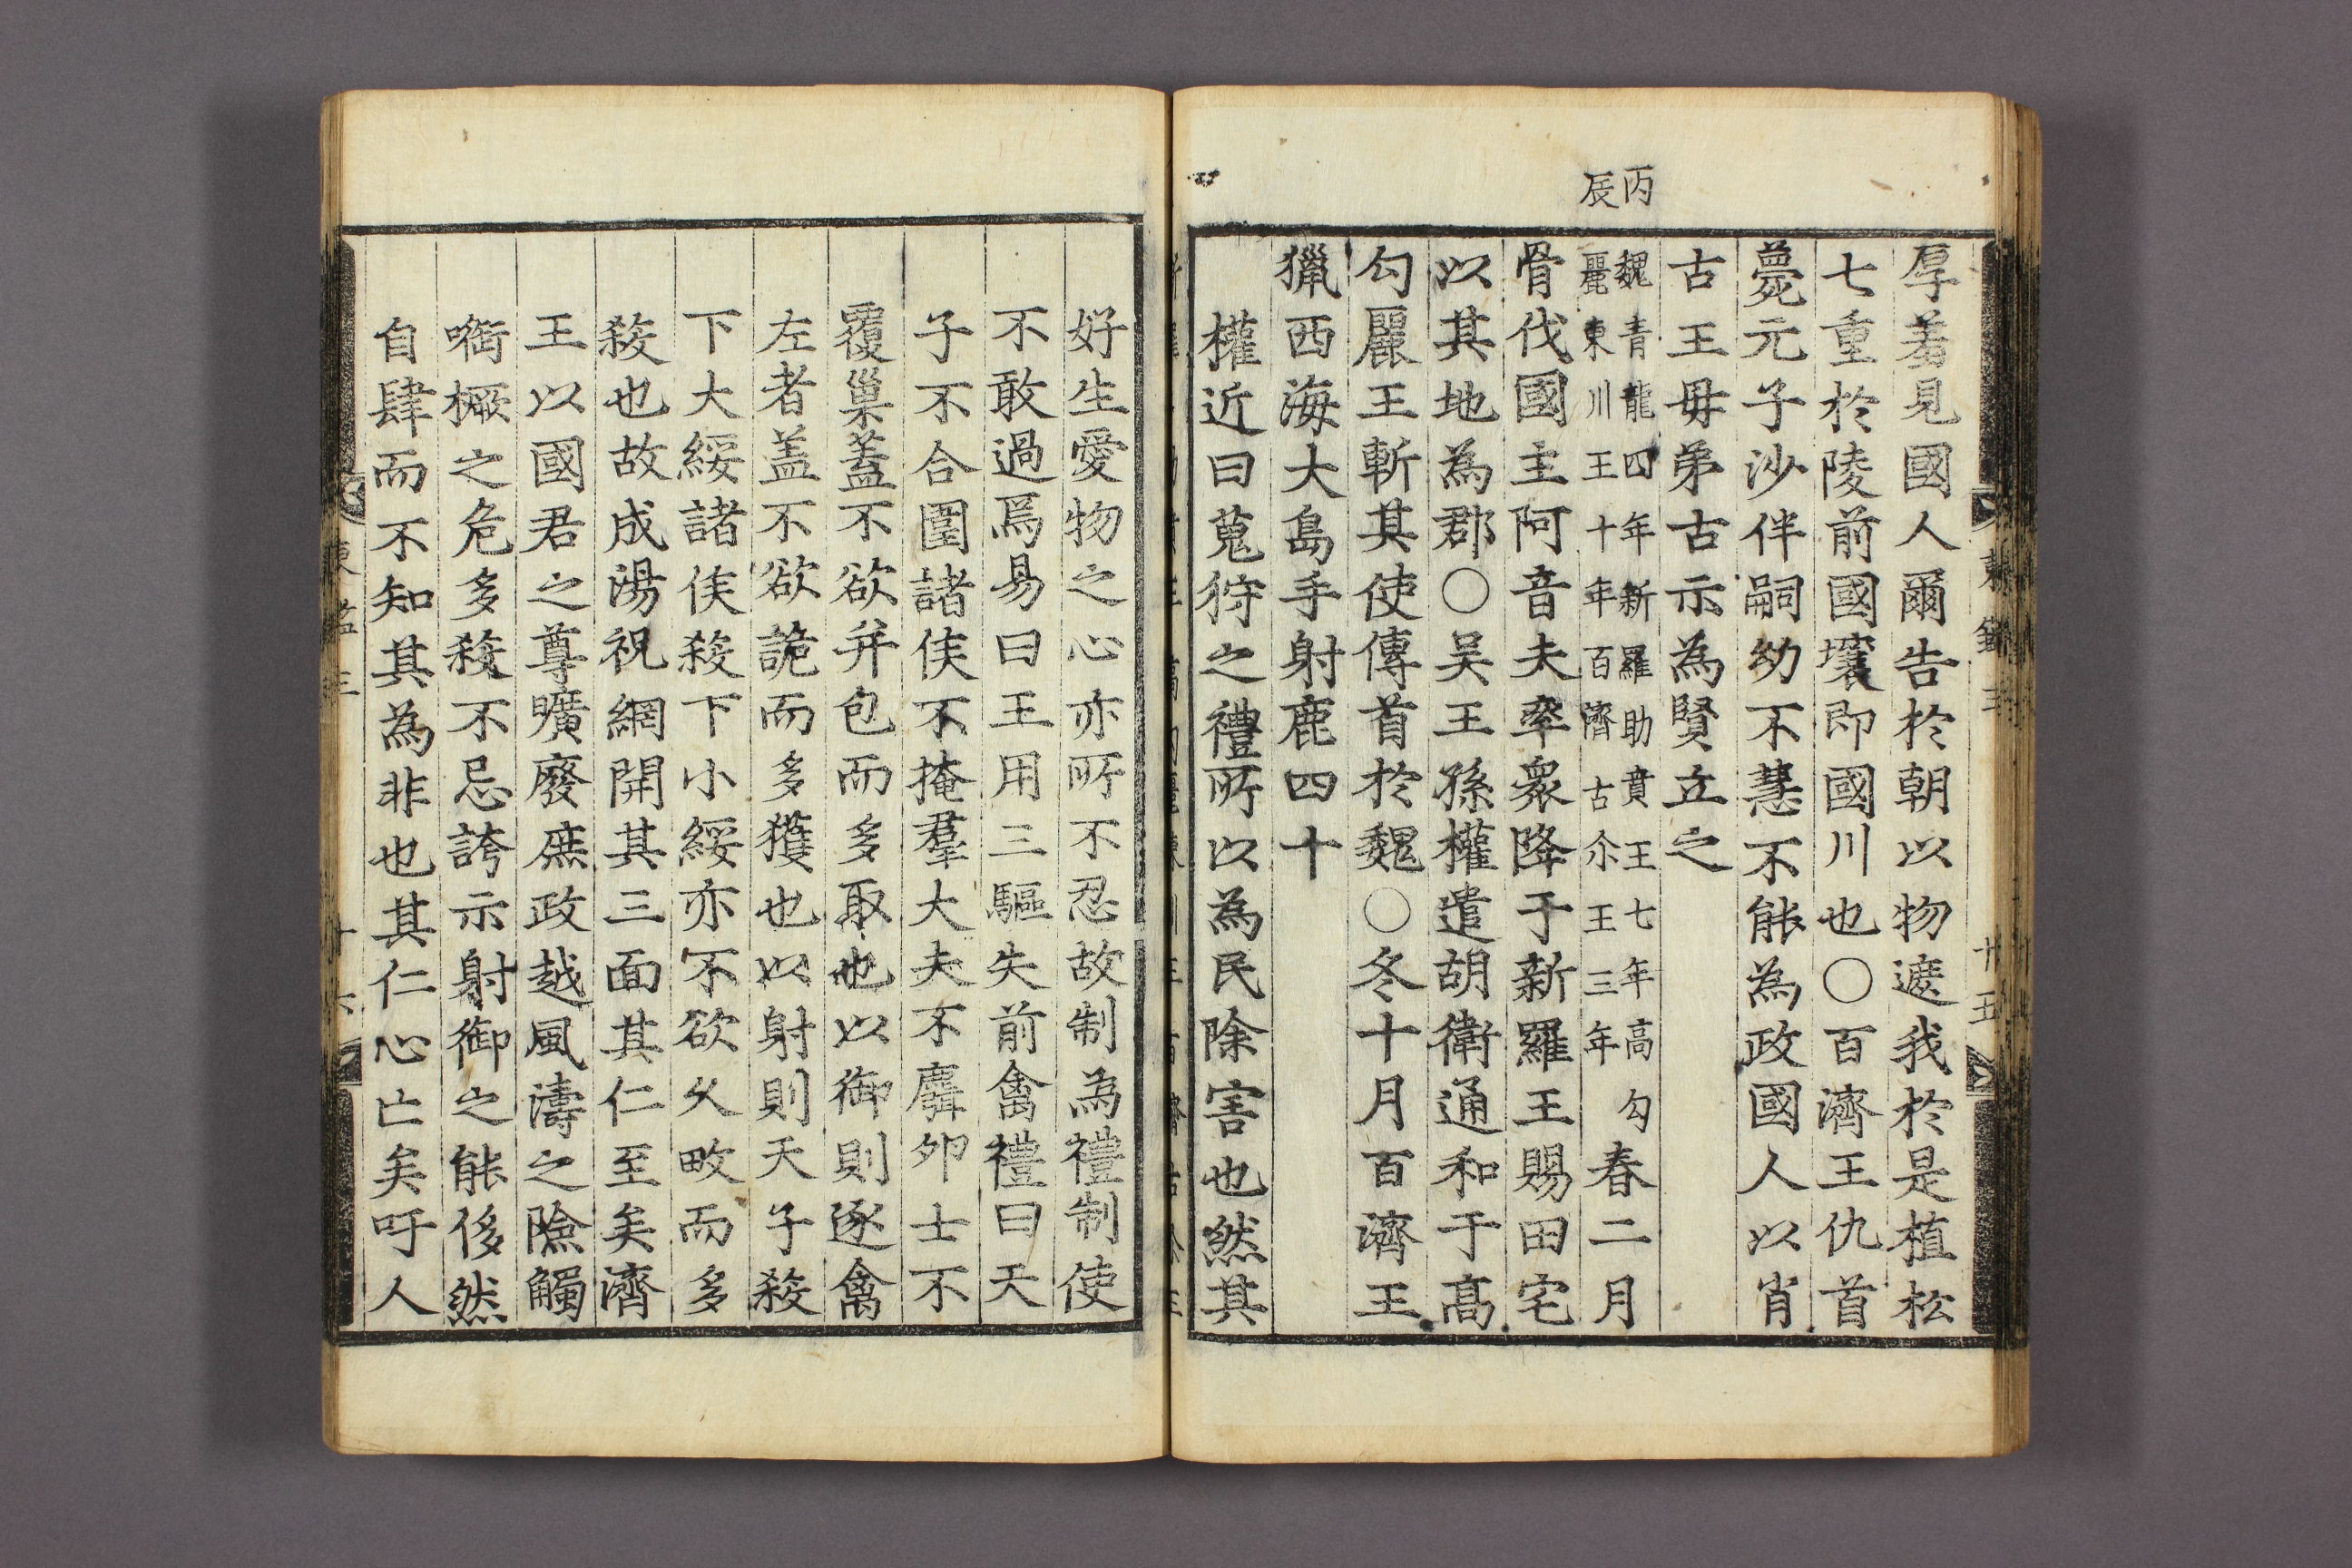 厚羞見國人爾告於朝以物遮我於是植松
七重於陵前國壤即國川也〇百濟王仇首
薨元子沙伴嗣幼不慧不能為政國人以肖
古王毋弟古示為賢立之
丙辰
魏青龍四年新羅助賁王七年高勾
麗東川王十年百濟古尒王三年
春二月
骨伐國主阿音夫率衆降于新羅王賜田宅
以其地為郡〇吴王孫權遣胡衛通和于高
勾麗王斬其使傳首於魏〇冬十月百濟王
獵西海大島手射鹿四十
權近曰蒐狩之禮所以為民除害也然其
東鑑三
十五
好生愛物之心亦所不忍故制為禮制使
不敢過焉易曰王用三驅失前禽禮曰天
子不合圍諸侯不掩羣大夫不麛卵士不
覆巢蓋不欲并包而多取也以御則逐禽
左者盖不欲詭而多獲也以射則天子殺
下大綏諸侯殺下小綏亦不欲久畋而多
殺也故成湯祝網開其三面其仁至矣濟
王以國君之尊曠廢庶政越風濤之險觸
㗸橛之危多殺不忌誇示射御之能侈然
自肆而不知其為非也其仁心亡矣吁人
東鑑三
十六